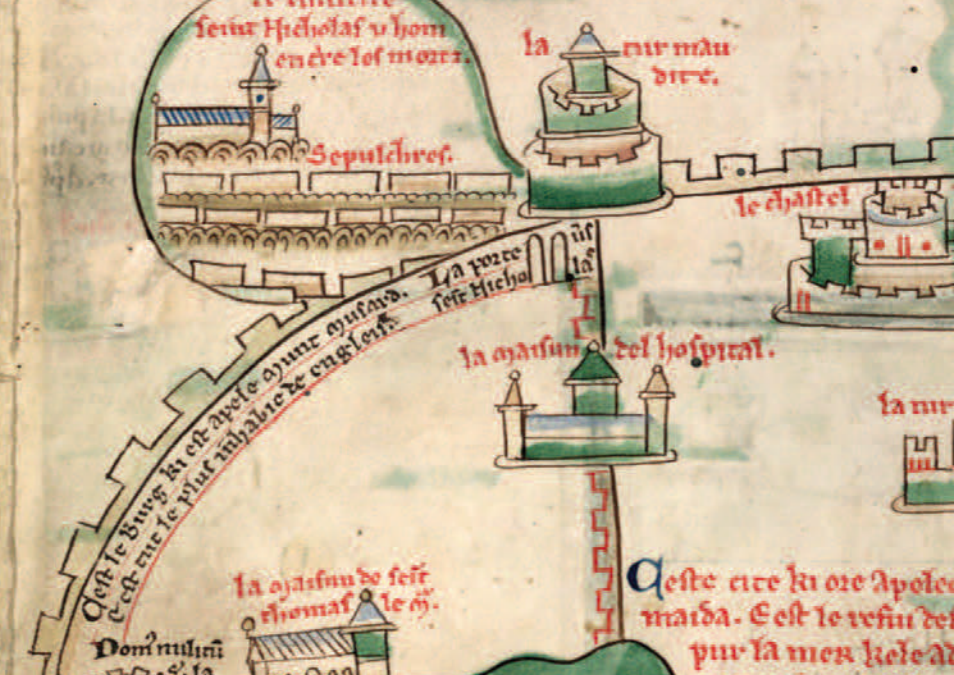 le cimitire
seint Nicholas u hom
entre les morz.
la tur mau
dite.
Sepulchres.
le chastel
La porte
seīt Nicho
las
C'est le Burg ki est apele munt musard.
C'est tut le plus inhabite de engleis.
la maisun del hospital.
la tur
la maisun de seīt
thomas le m̃.
Ceste cite ki ore apelee
maida. E est le refui de
pur la mer kele